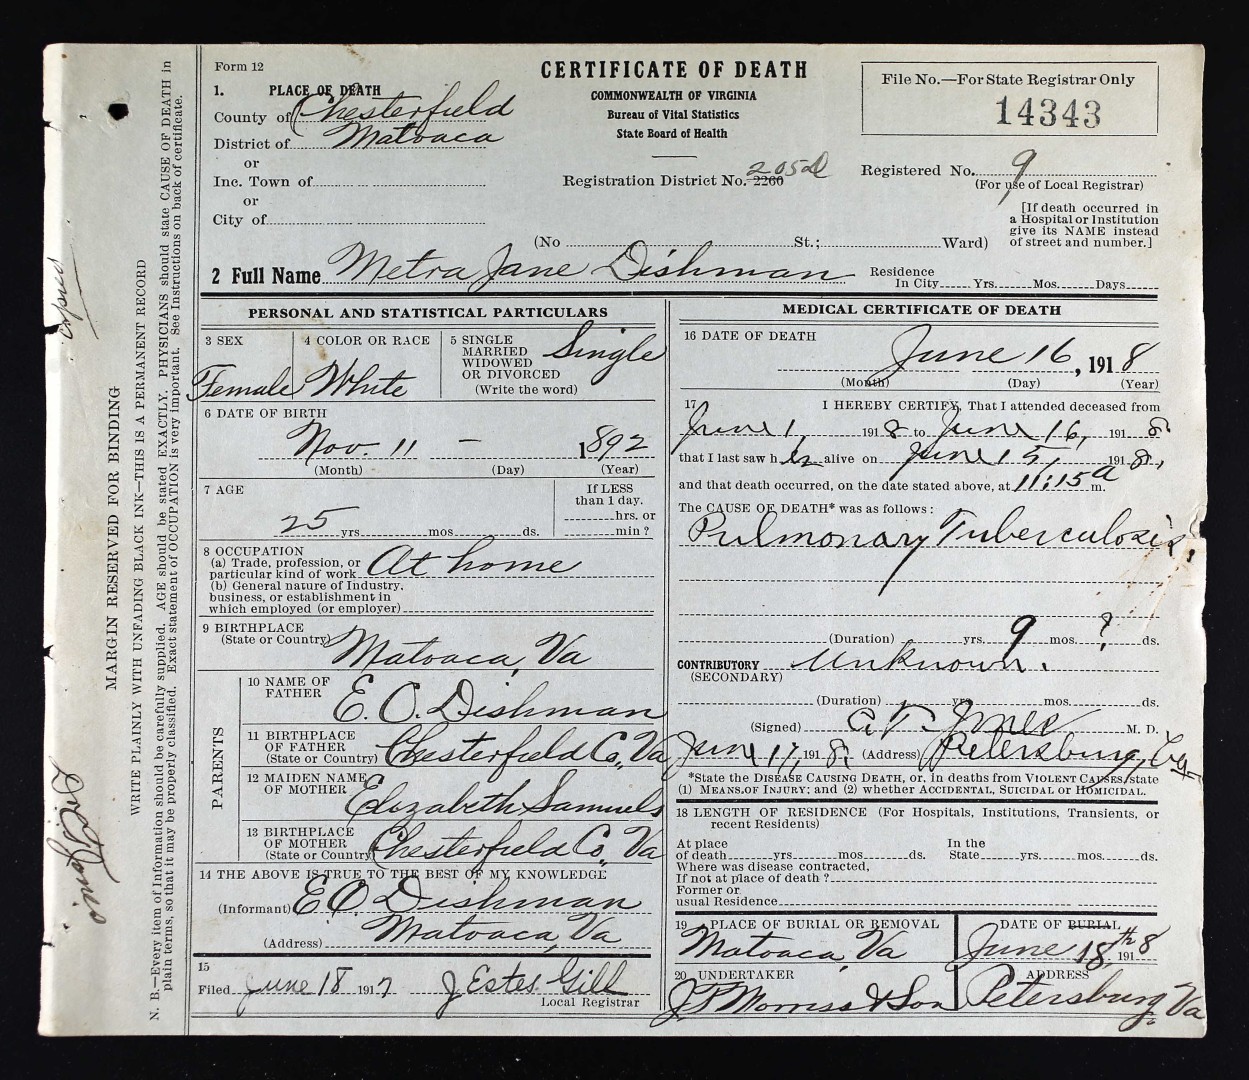 Form 12
CERTIFICATE OF DEATH
COMMONWEALTH OF VIRGINIA
Bureau of Vital Statistics
State Board of Health
File No.—For State Registrar Only
14343
1. PLACE OF DEATH
County of Chesterfield
District of Matoaca
or
Inc. Town of
or
City of
Registration District No. 2260 205d
Registered No. 9
(For use of Local Registrar)
[If death occurred in
a Hospital or Institution
give its NAME instead
of street and number.]
(No St.; Ward)
2 Full Name Metra Jane Dishman
Residence
In City Yrs. Mos. Days
PERSONAL AND STATISTICAL PARTICULARS
3 SEX
Female
4 COLOR OR RACE
White
5 SINGLE
MARRIED
WIDOWED
OR DIVORCED
(Write the word)
Single
6 DATE OF BIRTH
Nov. 11 — 1892
(Month) (Day) (Year)
7 AGE
25 yrs. mos. ds.
If LESS
than 1 day.
hrs. or
min ?
8 OCCUPATION
(a) Trade, profession, or
particular kind of work At home
(b) General nature of Industry,
business, or establishment in
which employed (or employer)
9 BIRTHPLACE
(State or Country) Matoaca, Va
PARENTS
10 NAME OF
FATHER E. O. Dishman
11 BIRTHPLACE
OF FATHER
(State or Country) Chesterfield Co., Va
12 MAIDEN NAME
OF MOTHER Elizabeth Samuels
13 BIRTHPLACE
OF MOTHER
(State or Country) Chesterfield Co., Va
14 THE ABOVE IS TRUE TO THE BEST OF MY KNOWLEDGE
(Informant) E O. Dishman
(Address) Matoaca, Va
15
Filed June 18 1917 J Estes Gill
Local Registrar
MEDICAL CERTIFICATE OF DEATH
16 DATE OF DEATH
June 16, 1918
(Month) (Day) (Year)
17 I HEREBY CERTIFY, That I attended deceased from
June 1, 1918 to June 16, 1918
that I last saw her alive on June 15, 1918,
and that death occurred, on the date stated above, at 11:15 a m.
The CAUSE OF DEATH* was as follows:
Pulmonary Tuberculosis.
(Duration) yrs. 9 mos. ? ds.
CONTRIBUTORY Unknown.
(SECONDARY)
(Duration) yrs. mos. ds.
(Signed) Jones M. D.
June 17, 1918. (Address) Petersburg, Va
*State the DISEASE CAUSING DEATH, or, in deaths from VIOLENT CAUSES, state
(1) MEANS OF INJURY; and (2) whether ACCIDENTAL, SUICIDAL or HOMICIDAL.
18 LENGTH OF RESIDENCE (For Hospitals, Institutions, Transients, or
recent Residents)
At place
of death yrs. mos. ds.
In the
State yrs. mos. ds.
Where was disease contracted,
If not at place of death ?
Former or
usual Residence
19 PLACE OF BURIAL OR REMOVAL
Matoaca, Va
DATE OF BURIAL
June 18th, 1918
20 UNDERTAKER
J T Morriss & Son
ADDRESS
Petersburg, Va
MARGIN RESERVED FOR BINDING
WRITE PLAINLY WITH UNFADING BLACK INK—THIS IS A PERMANENT RECORD
N. B.—Every item of information should be carefully supplied. AGE should be stated EXACTLY. PHYSICIANS should state CAUSE OF DEATH in
plain terms, so that it may be properly classified. Exact statement of OCCUPATION is very important. See Instructions on back of certificate.